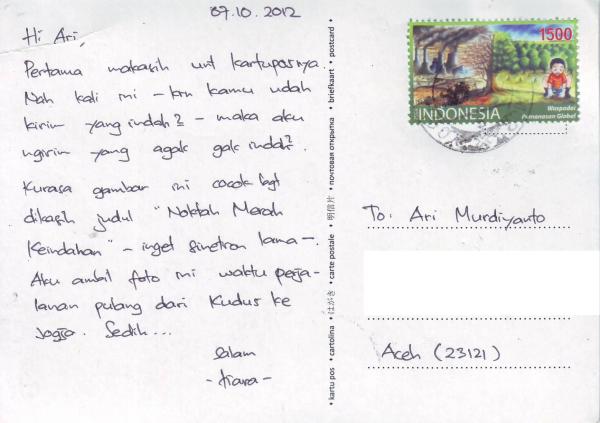 07.10.2012
Hi Ari,
Pertama makasih unt kartuposnya.
Nah kali ini - krn kamu udah
kirim yang indah2 - maka aku
ngirim yang agak gak indah2.
Kurasa gambar ini cocok bgt
dikasih judul "Noktah Merah
Keindahan" - inget sinetron lama -.
Aku ambil foto ini waktu perja-
lanan pulang dari Kudus ke
Jogja. Sedih...
salam
- tiara -
• kartu pos • cartolina • はがき • carte postale • 明信片 • почтовая открытка • briefkaart • postcard •
1500
INDONESIA
Waspadai
Pemanasan Global
To: Ari Murdiyanto
Aceh (23121)